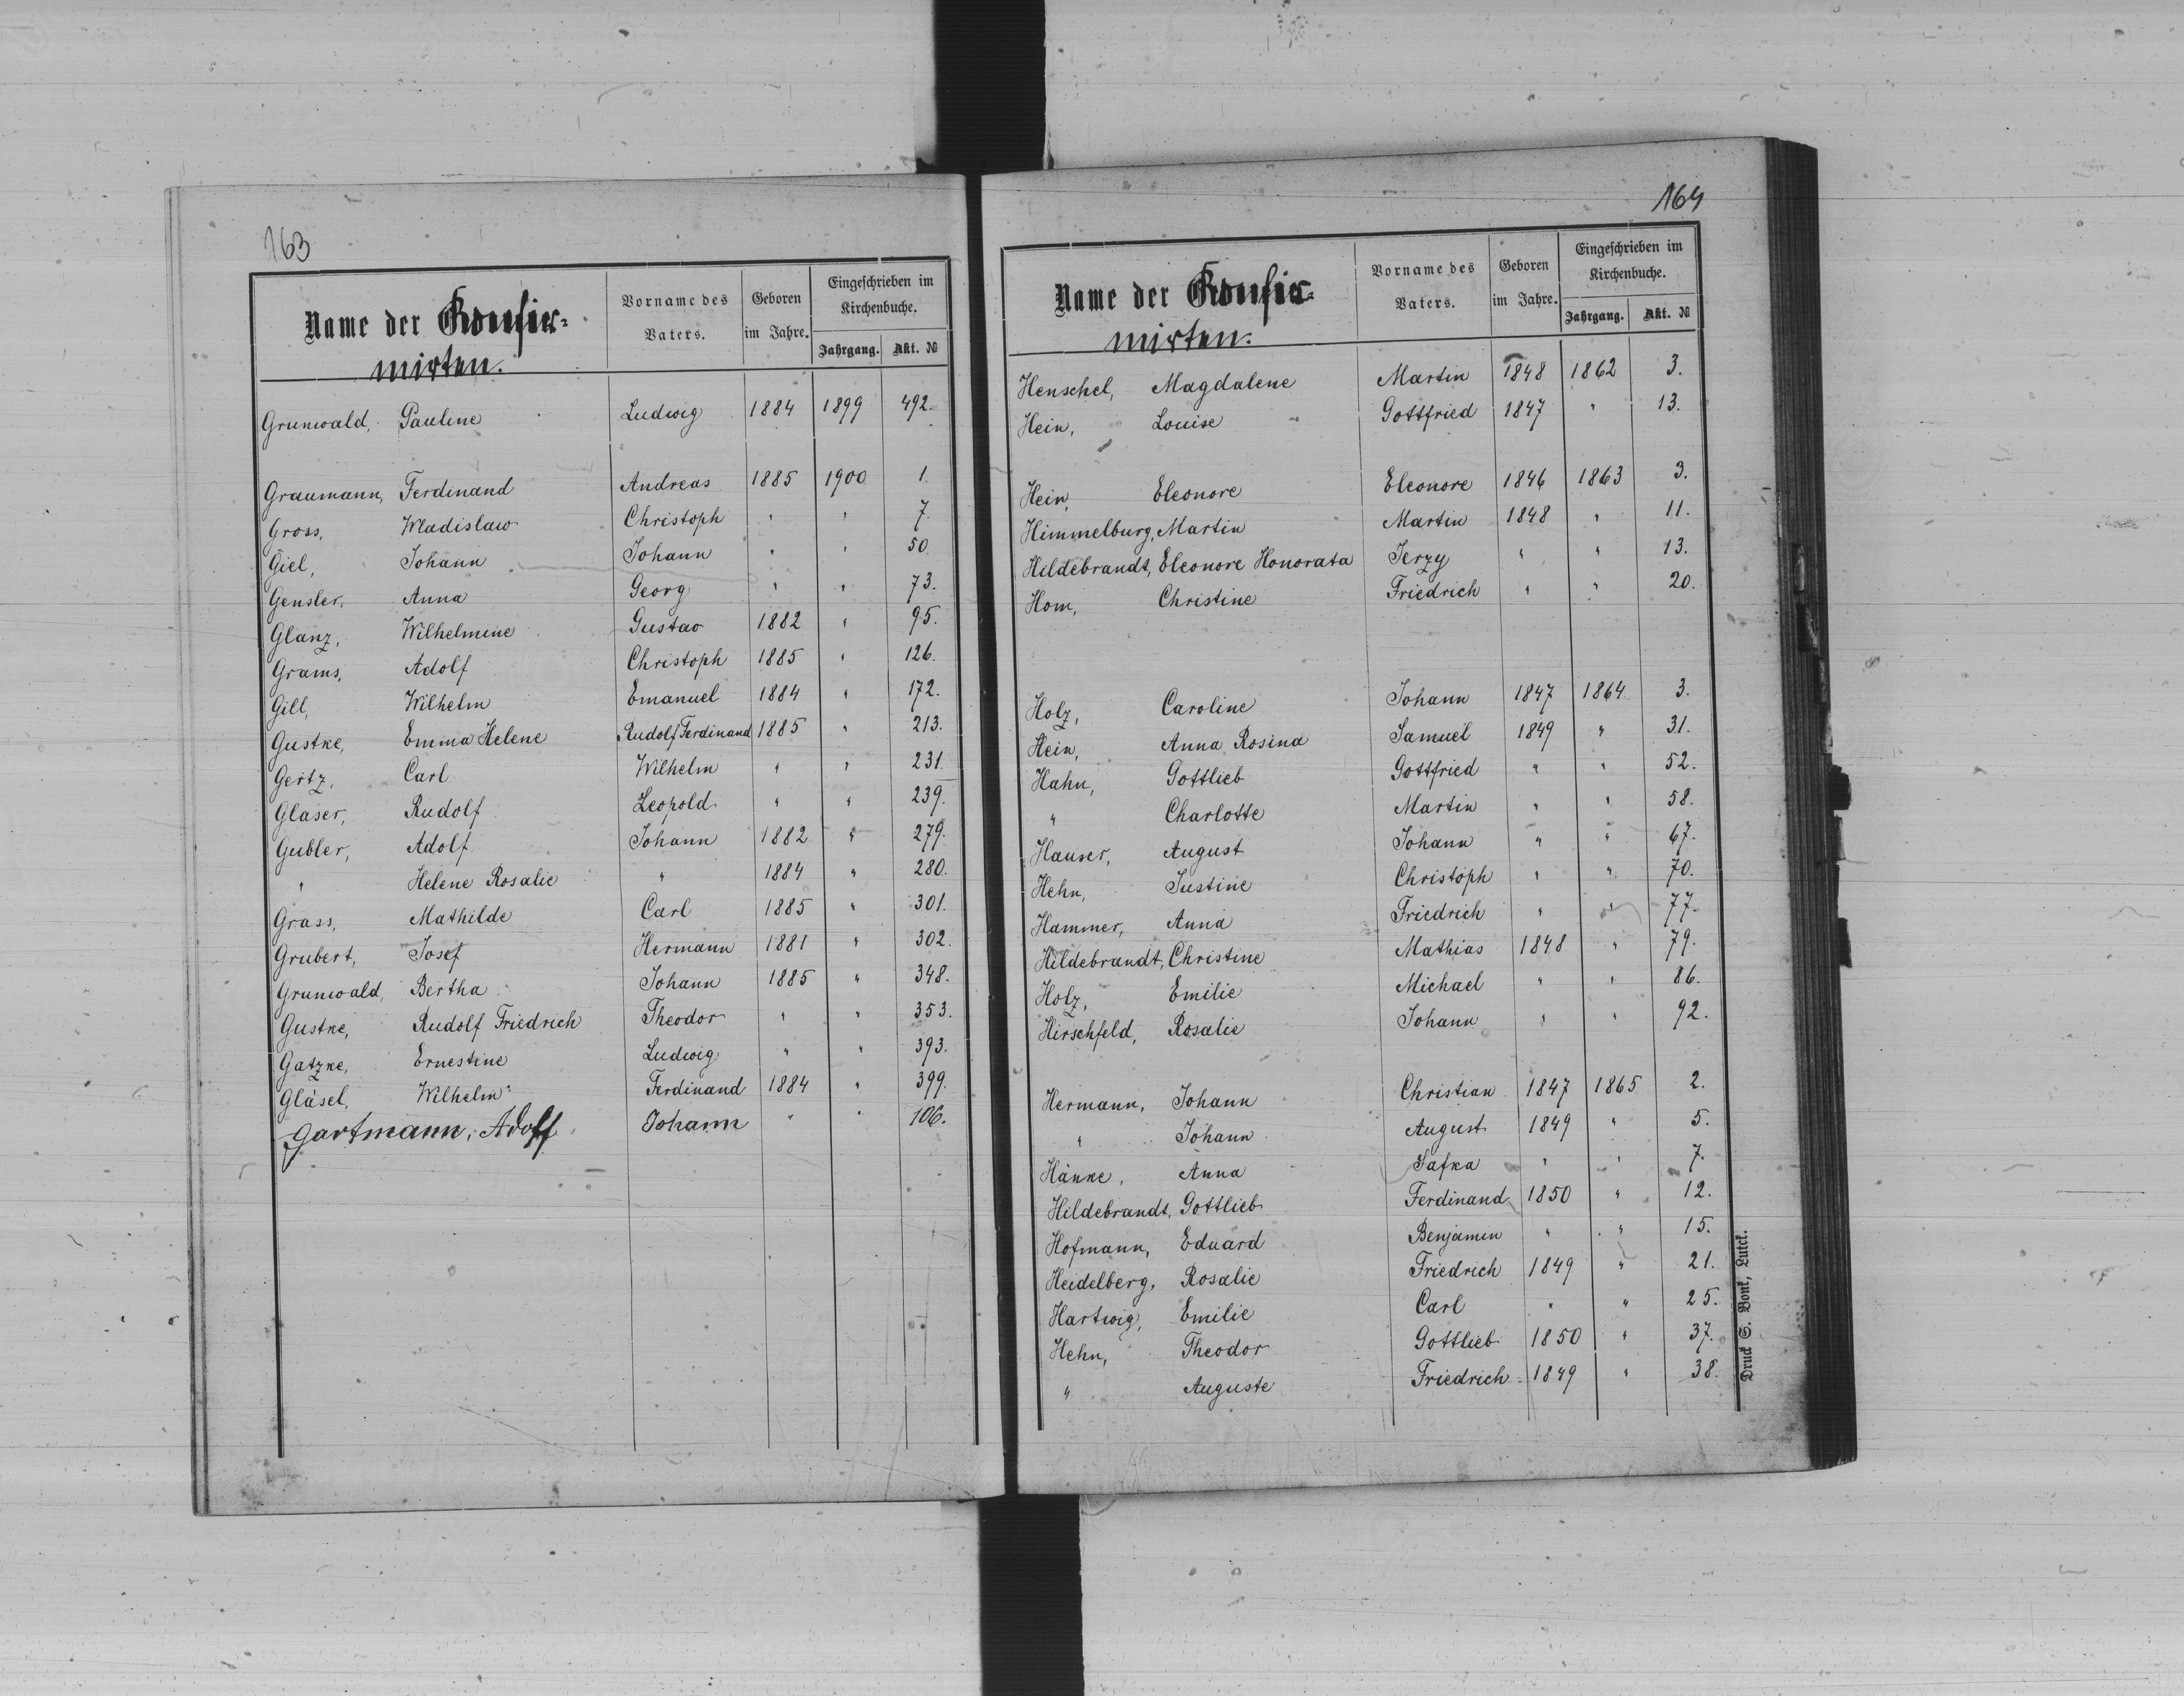 163
Name der Konfir-
mirten.
Vorname des
Vaters.
Geboren
im Jahre.
Eingeschrieben im
Kirchenbuche.
Jahrgang. Akt. №
Grunwald, Pauline Ludwig 1884 1899 492.
Graumann, Ferdinand Andreas 1885 1900 1.
Gross, Wladislaw Christoph " " 7.
Giel, Johann Johann " " 50.
Gensler, Anna Georg " " 73.
Glanz, Wilhelmine Gustav 1882 " 95.
Grams, Adolf Christoph 1885 " 126.
Gill, Wilhelm Emanuel 1884 " 172.
Gustke, Emma Helene Rudolf Ferdinand 1885 " 213.
Gertz, Carl Wilhelm " " 231.
Glaser, Rudolf Leopold " " 239.
Gubler, Adolf Johann 1882 " 279.
" Helene Rosalie " 1884 " 280.
Grass, Mathilde Carl 1885 " 301.
Grubert, Josef Hermann 1881 " 302.
Grunwald, Bertha Johann 1885 " 348.
Gustke, Rudolf Friedrich Theodor " " 353.
Gatzke, Ernestine Ludwig " " 393.
Gläsel, Wilhelm Ferdinand 1884 " 399.
Gartmann, Adolf Johann " " 106.
164
Name der Konfir-
mirten.
Vorname des
Vaters.
Geboren
im Jahre.
Eingeschrieben im
Kirchenbuche.
Jahrgang. Akt. №
Henschel, Magdalene Martin 1848 1862 3.
Hein, Louise Gottfried 1847 " 13.
Hein, Eleonore Eleonore 1846 1863 3.
Himmelburg, Martin Martin 1848 " 11.
Hildebrandt, Eleonore Honorata Jerzy " " 13.
Hom, Christine Friedrich " " 20.
Holz, Caroline Johann 1847 1864 3.
Hein, Anna Rosina Samuel 1849 " 31.
Hahn, Gottlieb Gottfried " " 52.
" Charlotte Martin " " 58.
Hauser, August Johann " " 67.
Hehn, Justine Christoph " " 70.
Hammer, Anna Friedrich " " 77.
Hildebrandt, Christine Mathias 1848 " 79.
Holz, Emilie Michael " " 86.
Hirschfeld, Rosalie Johann " " 92.
Hermann, Johann Christian 1847 1865 2.
" Johann August 1849 " 5.
Hänke, Anna Safka " " 7.
Hildebrandt, Gottlieb Ferdinand 1850 " 12.
Hofmann, Eduard Benjamin " " 15.
Heidelberg, Rosalie Friedrich 1849 " 21.
Hartwig, Emilie Carl " " 25.
Hehn, Theodor Gottlieb 1850 " 37.
" Auguste Friedrich 1849 " 38.
Druck S. Bonk, Lutck.